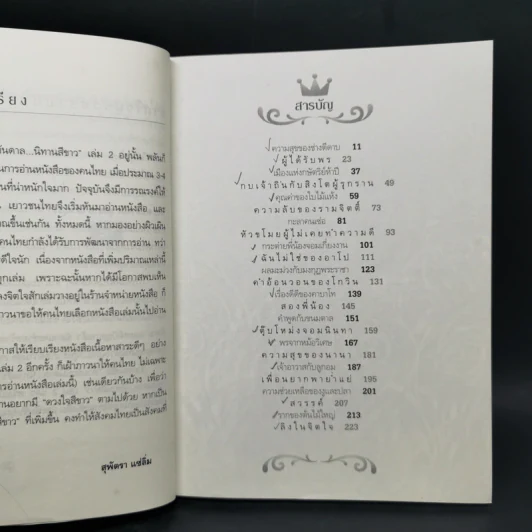 รียง
นดาล...นิทานสีขาว" เล่ม 2 อยู่นั้น พลันก็
นการอ่านหนังสือของคนไทย เมื่อประมาณ 3-4
นที่น่าหนักใจมาก ปัจจุบันจึงมีการรณรงค์ให้
เยาวชนไทยจึงเริ่มหันมาอ่านหนังสือ และ
ณขึ้นเช่นกัน ทั้งหมดนี้ หากมองอย่างผิวเผิน
คนไทยกำลังได้รับการพัฒนาจากการอ่าน ทว่า
ดีใจนัก เนื่องจากหนังสือที่เพิ่มปริมาณเหล่านี้
ทุกเล่ม เพราะฉะนั้นหากได้มีโอกาสพบเห็น
งจิตใจสักเล่มวางอยู่ในร้านจำหน่ายหนังสือ ก็
าวนาขอให้คนไทยเลือกหนังสือเล่มนั้นไปอ่าน
กาสให้เรียบเรียงหนังสือเนื้อหาสาระดีๆ อย่าง
เล่ม 2 อีกครั้ง ก็เฝ้าภาวนาให้คนไทย ไม่เฉพาะ
การอ่านหนังสือเล่มนี้) เช่นเดียวกันบ้าง เพื่อว่า
านอยากมี "ดวงใจสีขาว" ตามไปด้วย หากเป็น
สีขาว" ที่เพิ่มขึ้น คงทำให้สังคมไทยเป็นสังคมที่
สุพัตรา แซ่ลิ่ม
สารบัญ
ความสุขของช่างตีดาบ 11
ผู้ได้รับพร 23
เมืองแห่งกษัตริย์ห้าตา 39
กบเจ้าถิ่นกับสิงโตผู้รุกราน 49
คุณค่าของใบไม้แห้ง 59
ความลับของรามจิตตี้ 73
กะลาคนเซ่อ 81
หัวขโมยผู้ไม่เคยทำความดี
กระต่ายพี่น้องจอมเกี่ยงงาน 101
ฉันไม่ใช่ของอาโป
ผลมะม่วงกับมงกุฎพระราชา 123
คำอ้อนวอนของโกวิน 131
เรื่องดีดีของคาบาโท 139
สองพี่น้อง 145
คำพูดกับขนมตาล 151
ตุ๊บโหม่งจอมนินทา 159
พรจากหม้อวิเศษ 167
ความสุขของนานา
เจ้าอาวาสกับลูกอม 187
เพื่อนยากพายำแย่ 195
ความช่วยเหลือของงูและปลา 201
สวรรค์ 207
รากของต้นไม้ใหญ่ 213
ลิงในจิตใจ 223